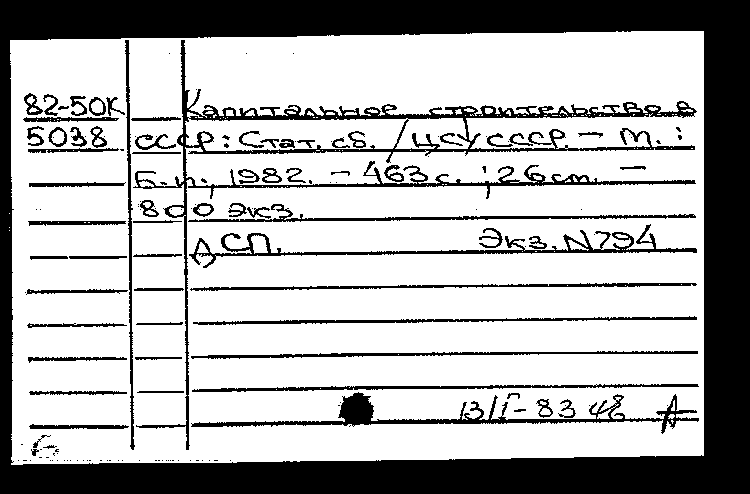 82-50К Капитальное строительство в
5038 СССР: Стат. сб. / ЦСУ СССР. — М. :
Б.и., 1982. - 463 с. ; 26 cm. —
800 экз.
ДСП. Экз. N794
13/I-83 48
Б